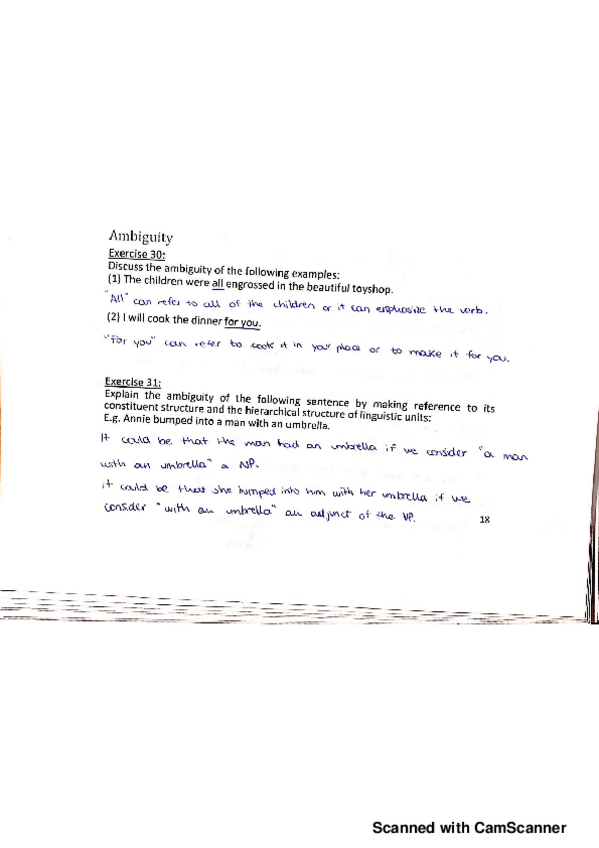 Ambiguity
Exercise 30:
Discuss the ambiguity of the following examples:
(1) The children were all engrossed in the beautiful toyshop.
"All" can refer to all of the children or it can emphasize the verb.
(2) I will cook the dinner for you.
"For you" can refer to cook it in your place or to make it for you.
Exercise 31:
Explain the ambiguity of the following sentence by making reference to its
constituent structure and the hierarchical structure of linguistic units:
E.g. Annie bumped into a man with an umbrella.
It could be that the man had an umbrella if we consider "a man
with an umbrella" a NP.
it could be that she bumped into him with her umbrella if we
consider "with an umbrella" an adjunct of the VP.
18
Scanned with CamScanner